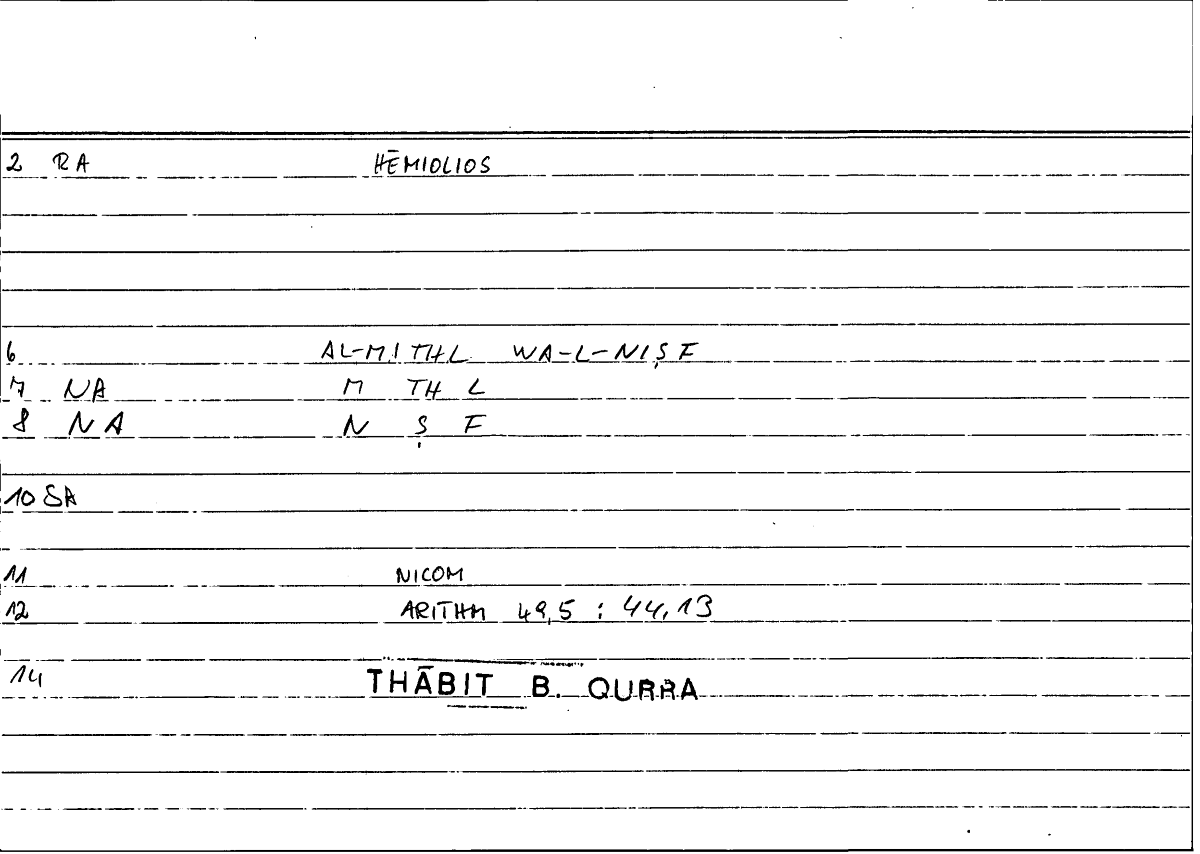 2 RA HĒMIOLIOS
6 AL-MITHL WA-L-NIṢF
7 NA M TH L
8 NA N Ṣ F
10 SA
11 NICOM
12 ARITHM 49,5 : 44,13
14 THĀBIT B. QURRA